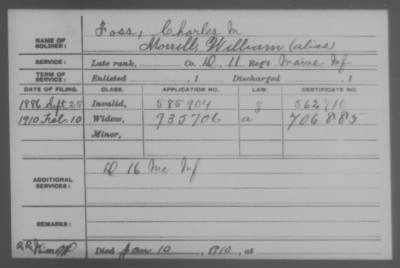 NAME OF SOLDIER: Foss, Charles M
Morrills William (alias)
SERVICE: Late rank, Co D, 11 Reg't Maine Inf
TERM OF SERVICE: Enlisted , 1 Discharged , 1
DATE OF FILING. CLASS. APPLICATION NO. LAW. CERTIFICATE NO.
1886 Sept 28 Invalid, 585904 562910
1910 Feb. 10 Widow, 935706 a 706885
Minor,
ADDITIONAL SERVICES: D 16 Me Inf
REMARKS:
Died Jan 10, 1910, at